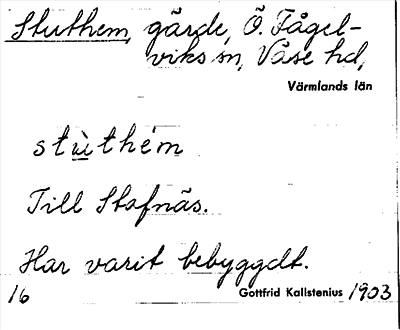 Stuthem, gärde, Ö. Fågel-
viks sn, Väse hd,
Värmlands län
stùthém
Till Stafnäs.
Har varit bebyggdt.
16 Gottfrid Kallstenius 1903